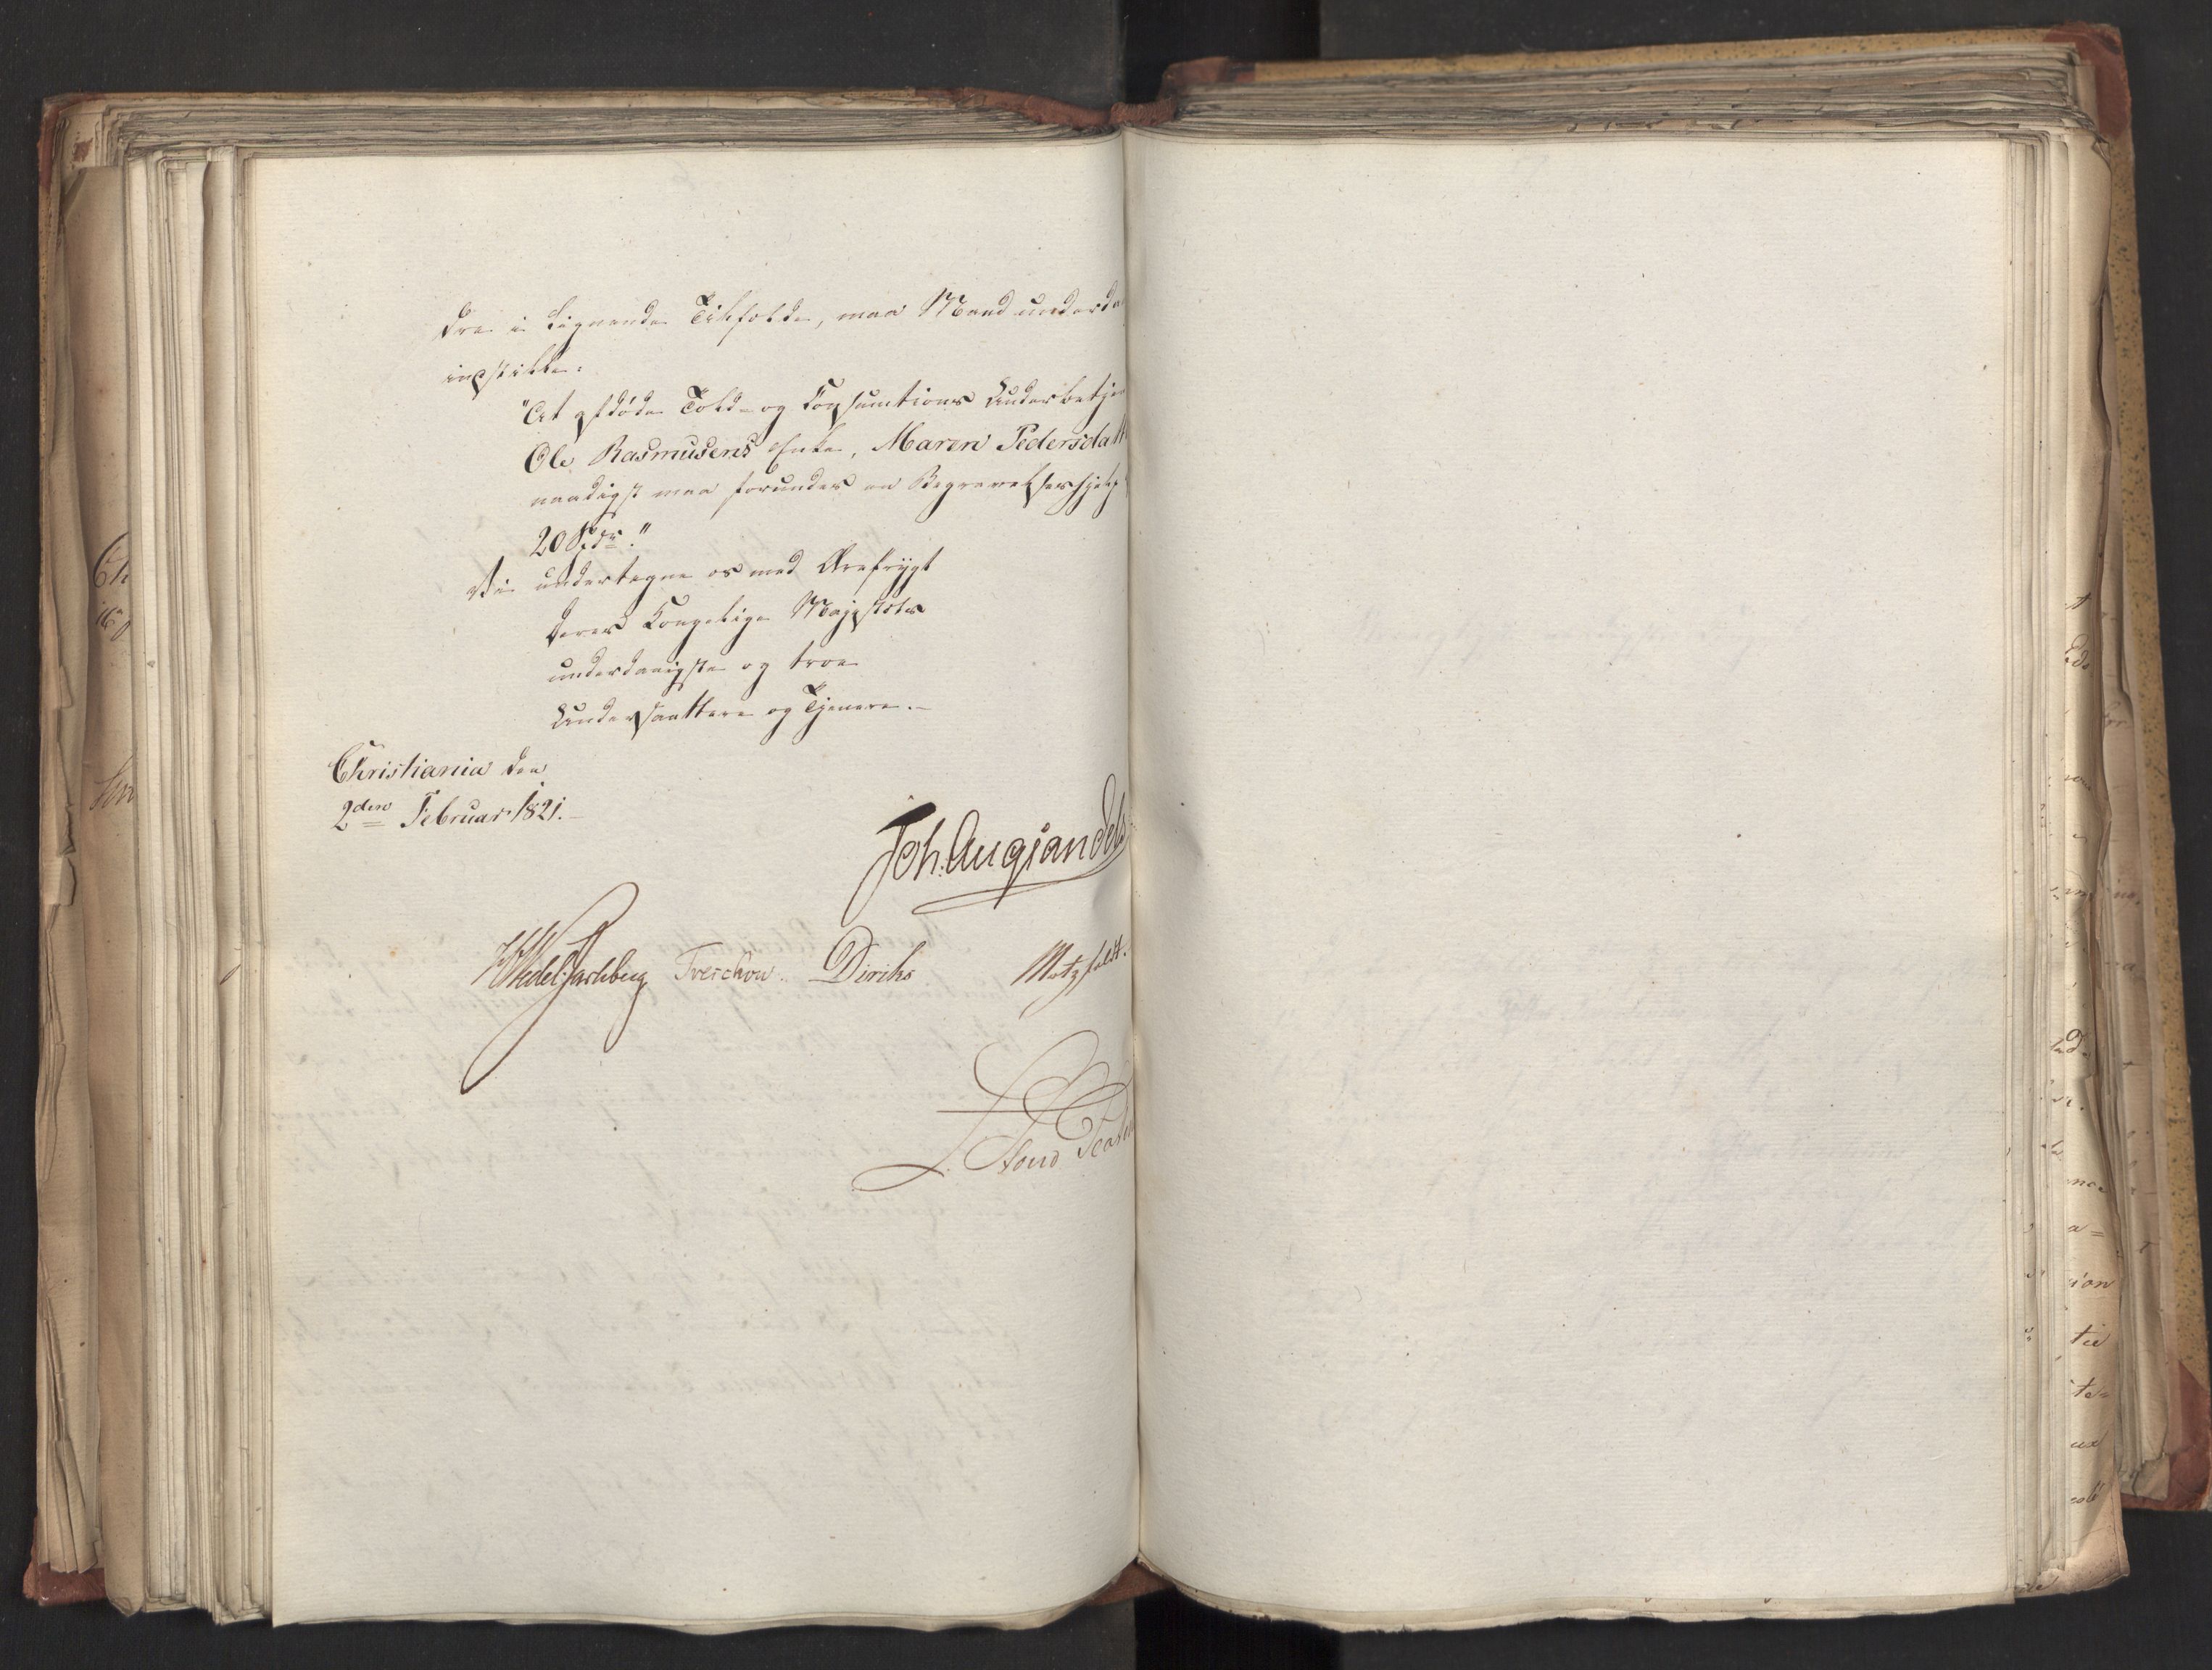 dre i lignende Tilfælde, maa Man underda
indstille:
"At afdøde Told- og Consumtions Underbetjen
Ole Rasmusens Enke, Maren Pedersdatt
naadigst maa forundes en Begravelseshjelp
20 Spdr."
Vi undertegne os med Ærefrygt
Deres Kongelige Majestæts
underdanigste og troe
Undersaattere og Tjenere.-
Christiania den
2den Februar 1821.-
Joh. Aug Sandels
HWedel Jarlsberg Treschow. Diriks Motzfeldt.